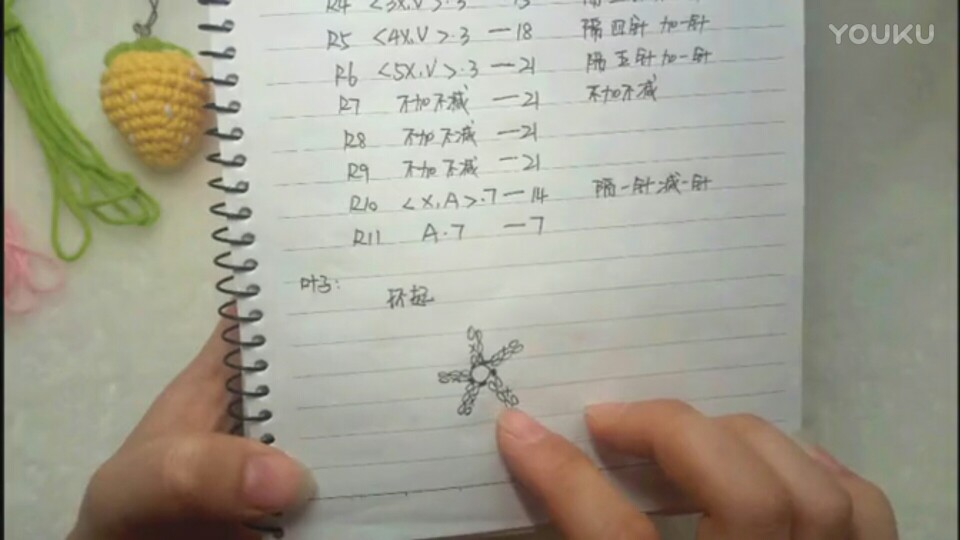 R4 <3X.V>.3 — 15
R5 <4X.V>.3 — 18 隔四针加一针
R6 <5X.V>.3 — 21 隔五针加一针
R7 不加不减 — 21 不加不减
R8 不加不减 — 21
R9 不加不减 — 21
R10 <X.A>.7 — 14 隔一针减一针
R11 A.7 — 7
叶子:
环起
YOUKU